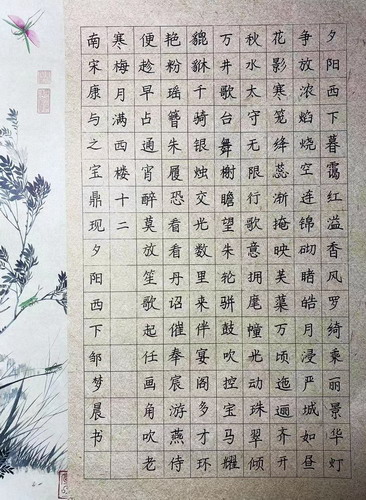 夕阳西下暮霭红溢香风罗绮乘丽景华灯
争放浓焰烧空连锦砌睹皓月浸严城如昼
花影寒笼绛蕊渐掩映芙蕖万顷迤逦齐开
秋水太守无限行歌意拥麾幢光动珠翠倾
万井歌台舞榭瞻望朱轮骈鼓吹控宝马耀
貔貅千骑银烛交光数里来伴宴阁多才环
艳粉瑶簪朱履恐看看丹诏催奉宸游燕侍
便趁早占通宵醉莫放笙歌起任画角吹老
寒梅月满西楼十二
南宋康与之宝鼎现夕阳西下邹梦晨书